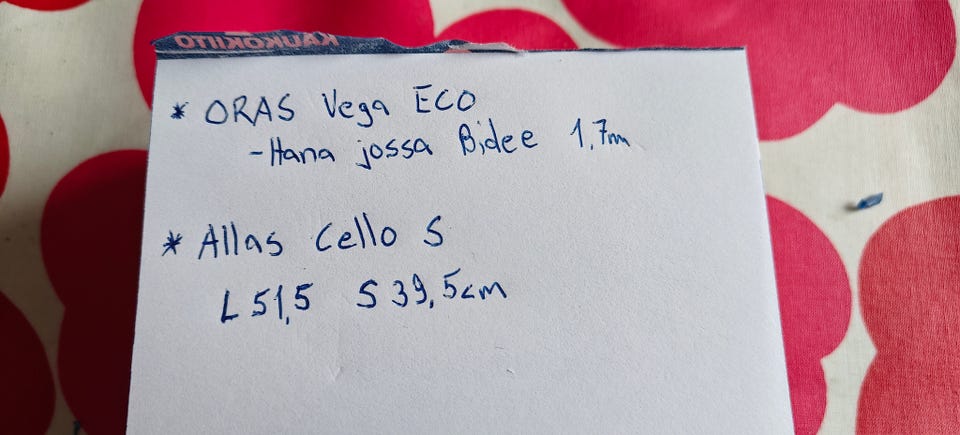 KAUKOKIITO
* ORAS Vega ECO
-Hana jossa Bidee 1,7m
* Allas Cello S
L 51,5 S 39,5cm